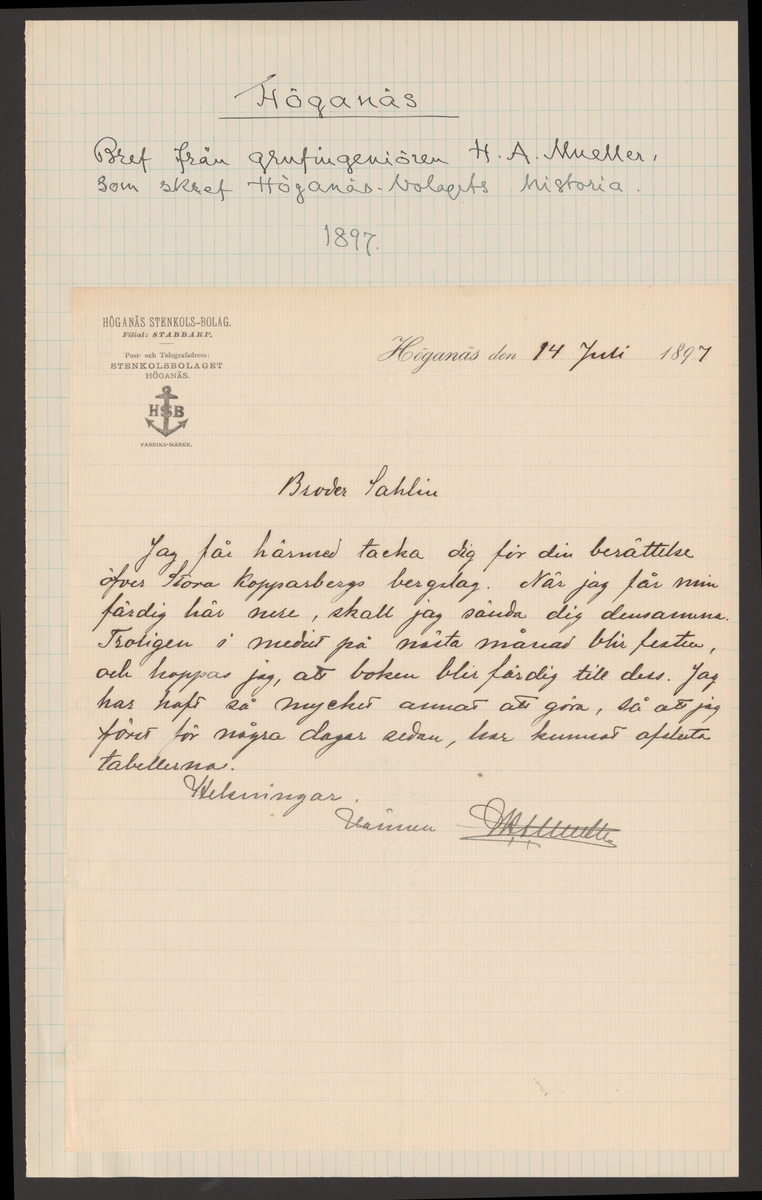 Höganäs
Bref från grufingeniören H. A. Mueller,
som skref Höganäs-bolagets historia.
1897.
HÖGANÄS STENKOLS-BOLAG.
Filial: STABBARP.
Post- och Telegrafadress:
STENKOLSBOLAGET
HÖGANÄS.
HSB
FABRIKS-MÄRKE.
Höganäs den 14 Juli 1897
Broder Sahlin
Jag får härmed tacka dig för din berättelse
öfver Stora Kopparbergs bergslag. När jag får min
färdig här nere, skall jag sända dig densamma.
Troligen i medlet på nästa månad blir festen,
och hoppas jag, att boken blir färdig till dess. Jag
har haft så mycket annat att göra, så att jag
först för några dagar sedan, har kunnat afsluta
tabellerna.
Helsningar.
Vännen HAMueller